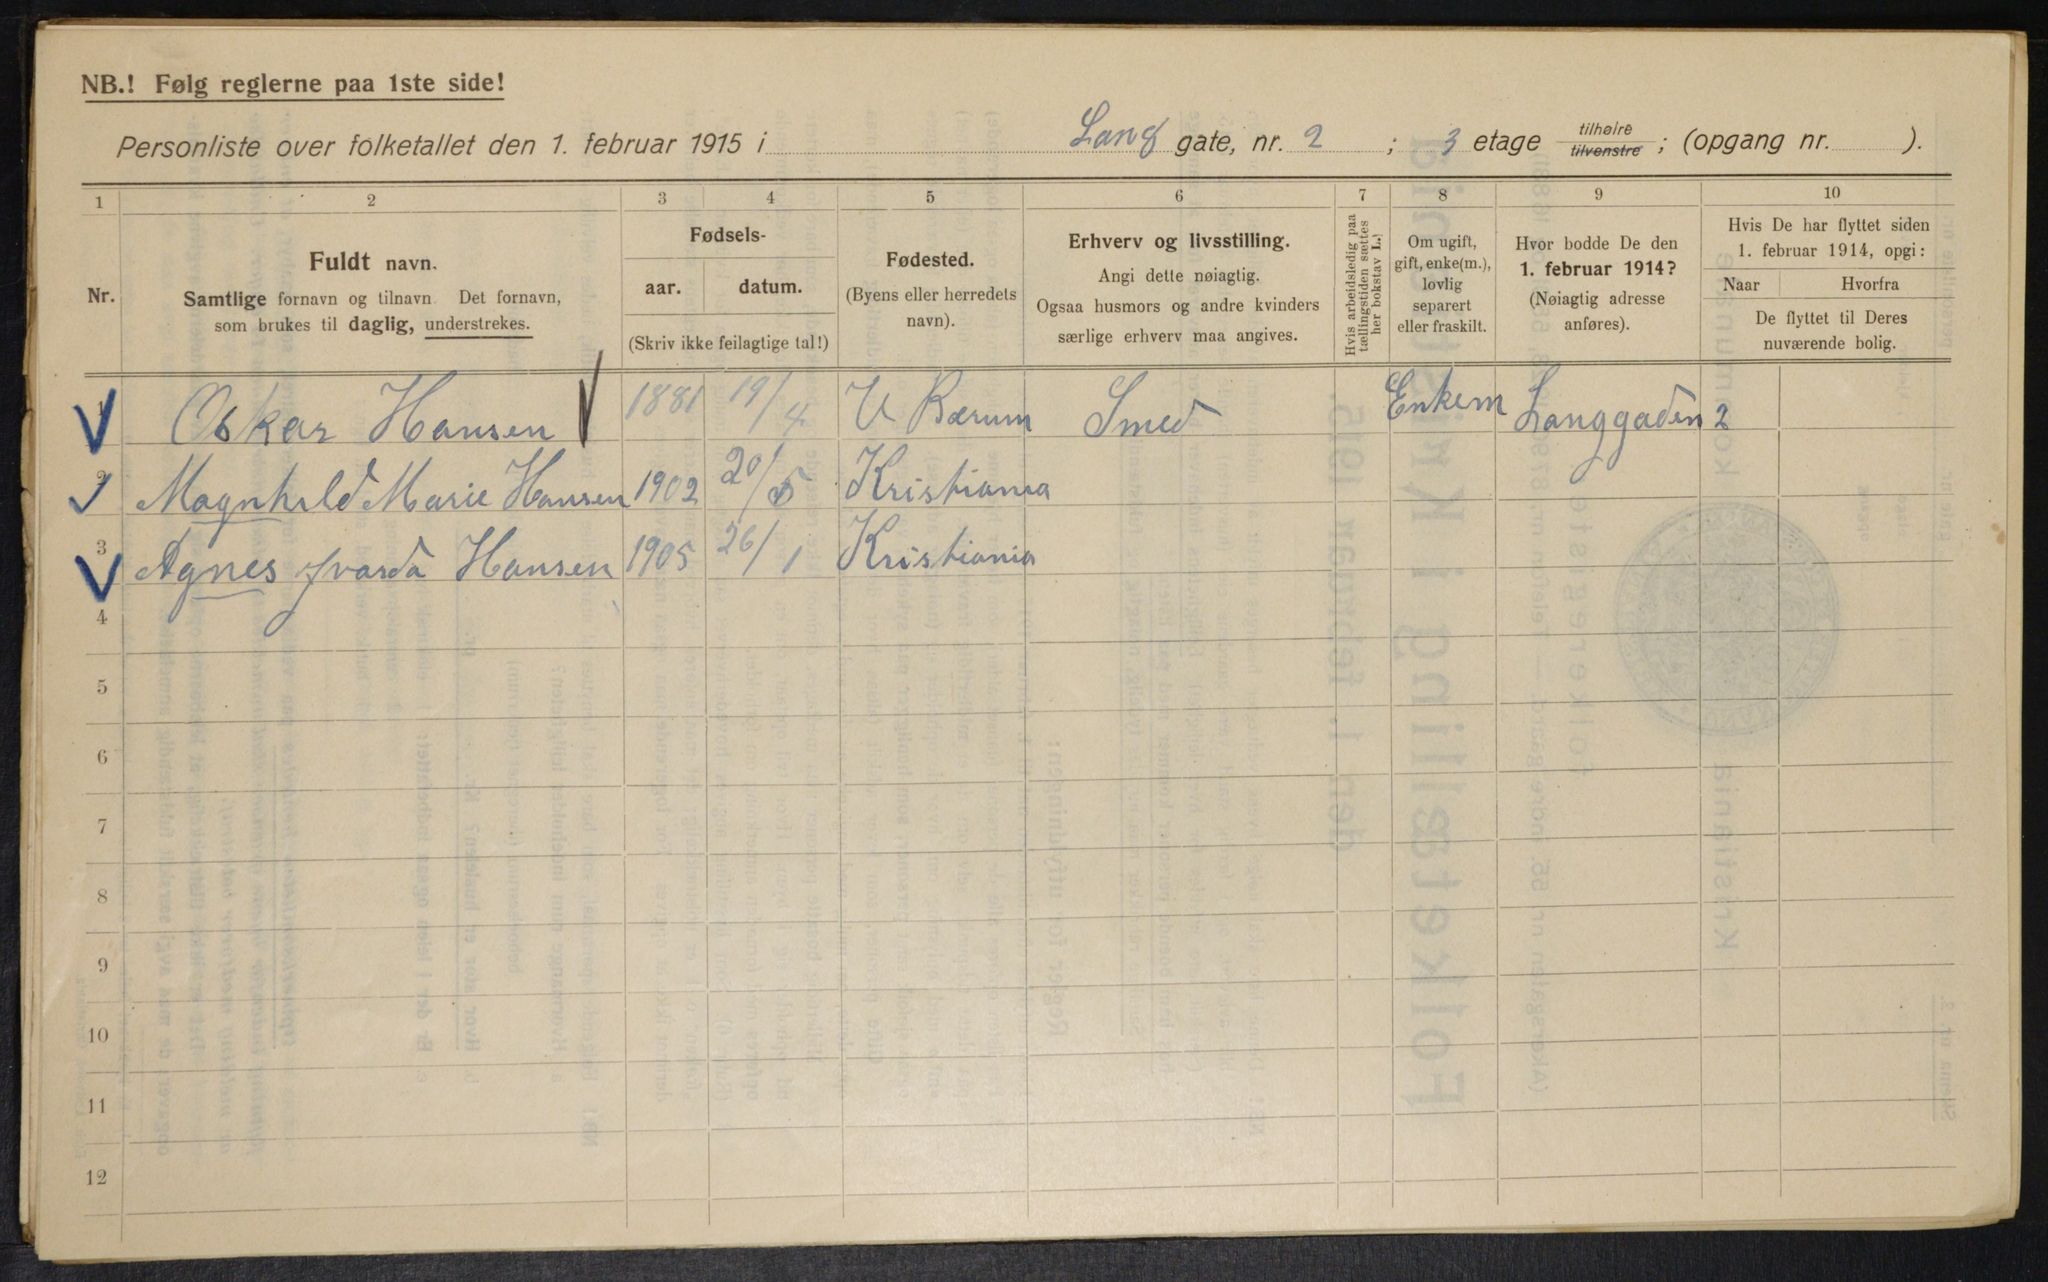 NB.! Følg reglerne paa 1ste side!
Personliste over folketallet den 1. februar 1915 i Lang gate, nr. 2 ; 3 etage tilhøire tilvenstre ; (opgang nr. ).
1 2 3 4 5 6 7 8 9 10
Nr.
Fuldt navn.
Samtlige fornavn og tilnavn. Det fornavn,
som brukes til daglig, understrekes.
Fødsels-
aar. datum.
(Skriv ikke feilagtige tal!)
Fødested.
(Byens eller herredets
navn).
Erhverv og livsstilling.
Angi dette nøiagtig.
Ogsaa husmors og andre kvinders
særlige erhverv maa angives.
Hvis arbeidsledig paa
tællingstiden sættes
her bokstav L.)
Om ugift,
gift, enke(m.),
lovlig
separert
eller fraskilt.
Hvor bodde De den
1. februar 1914?
(Nøiagtig adresse
anføres).
Hvis De har flyttet siden
1. februar 1914, opgi:
Naar Hvorfra
De flyttet til Deres
nuværende bolig.
1 Oskar Hansen 1881 19/4 V Bærum Smed Enkem Langgaden 2
2 Magnhild Marie Hansen 1902 20/5 Kristiania
3 Agnes Hansen 1905 26/1 Kristiania
4
5
6
7
8
9
10
11
12